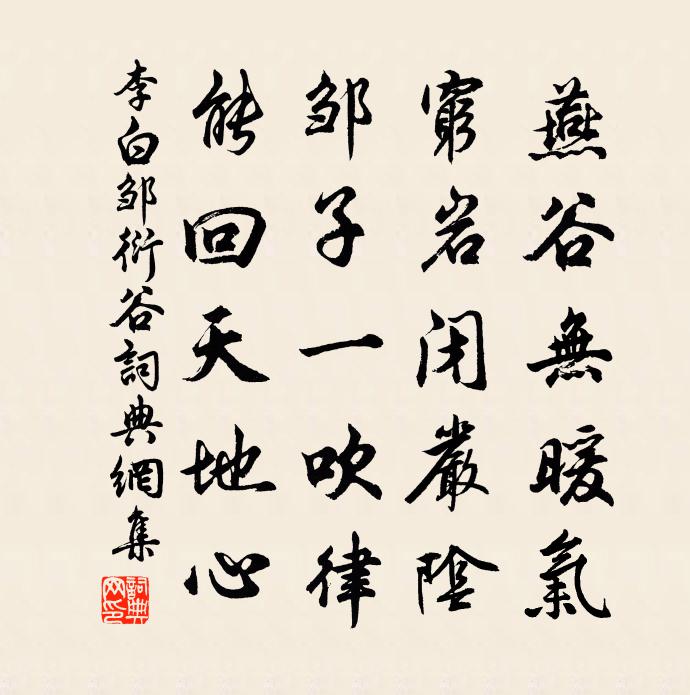 燕谷無暖氣
窮岩闭嚴陰
邹子一吹律
能回天地心
李白邹衍谷詞典網集
詞典網印